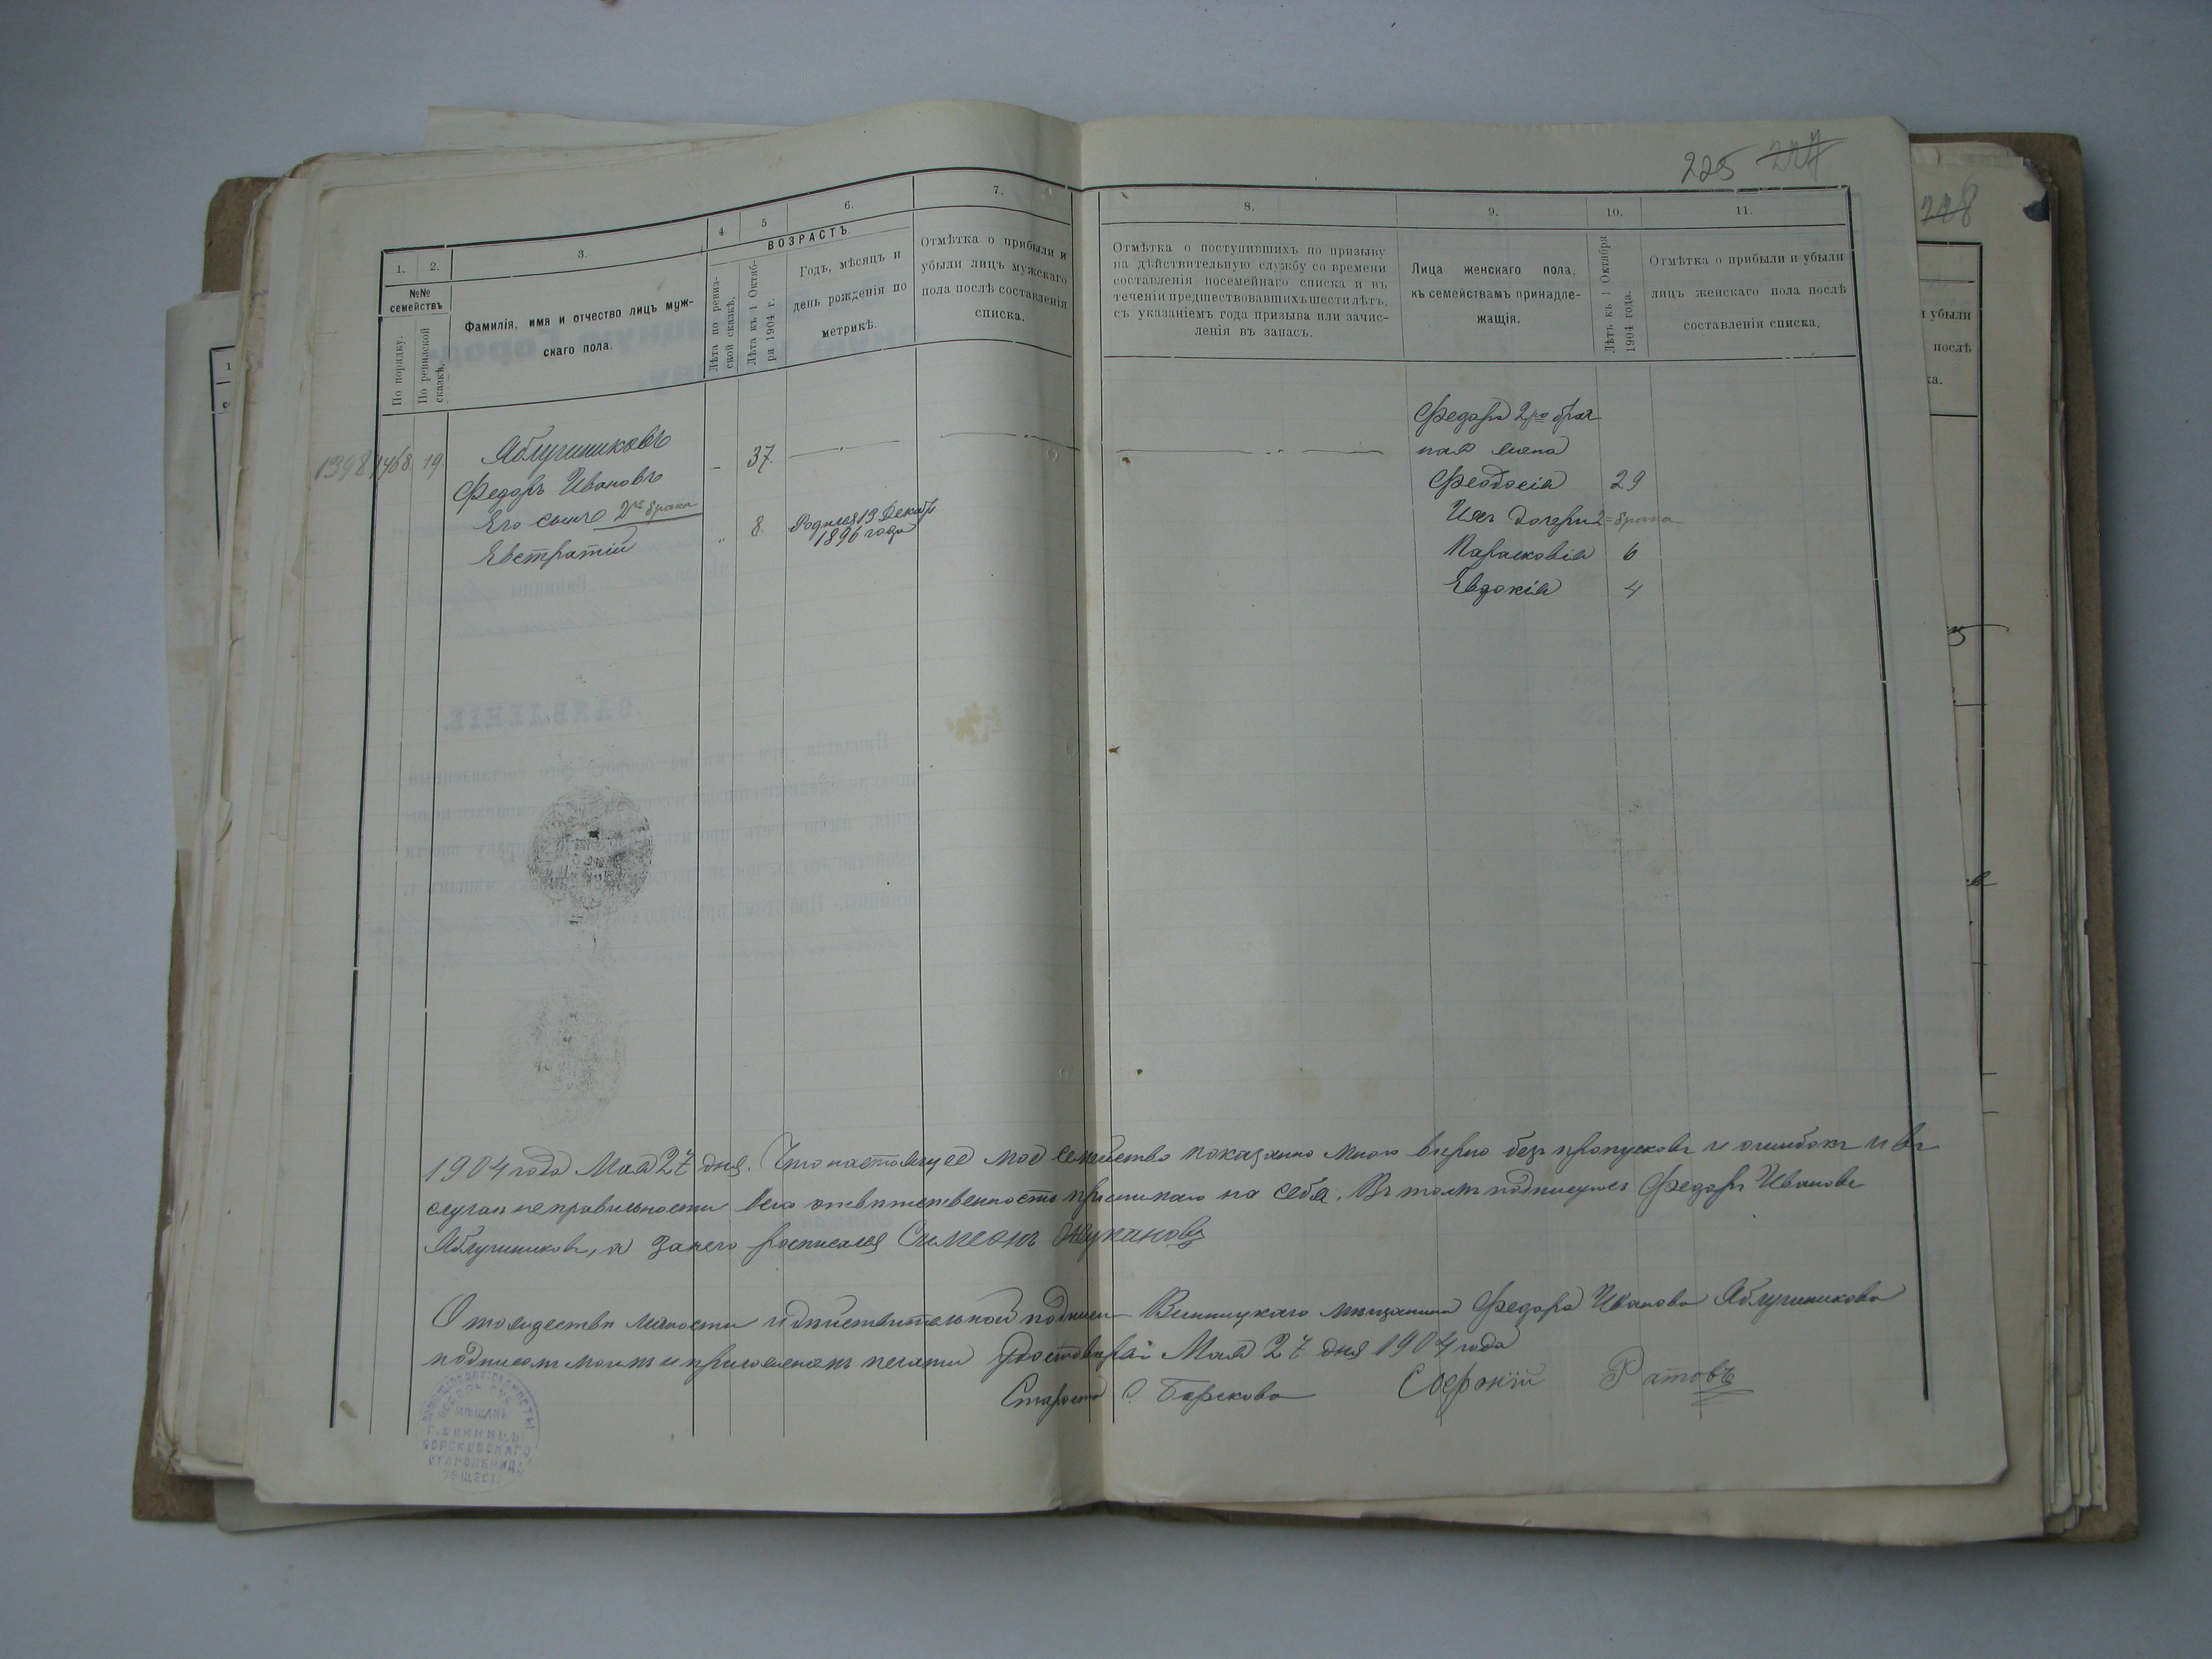 225 227
228
1. 2. 3. 4 5 6. 7.
№№ семействъ
По порядку.
По ревизской сказкѣ.
Фамилія, имя и отчество лицъ муж-
скаго пола.
ВОЗРАСТЪ.
Лѣта по ревиз-
ской сказкѣ.
Лѣта къ 1 Октяб-
ря 1904 г.
Годъ, мѣсяцъ и
день рожденія по
метрикѣ.
Отмѣтка о прибыли и
убыли лицъ мужскаго
пола послѣ составленія
списка.
8. 9. 10. 11.
Отмѣтка о поступившихъ по призыву
на дѣйствительную службу со времени
составленія посемейнаго списка и въ
теченіи предшествовавшихъ шести лѣтъ,
съ указаніемъ года призыва или зачис-
ленія въ запасъ.
Лица женскаго пола,
къ семействамъ принадле-
жащія.
Лѣтъ къ 1 Октября
1904 года.
Отмѣтка о прибыли и убыли
лицъ женскаго пола послѣ
составленія списка.
и убыли
послѣ
ка.
1398 1468. 19.
Яблучниковъ
Федоръ Ивановъ 37.
Его сынъ 2го брака
Евстратій 8. Родился 13 Декабр
1896 года
Федора 2го брач
ная жена
Феодосія 29
Ихъ дочери 2 брака
Парасковія 6
Евдокія 4
1904 года Мая 27 дня. Что настоящее мое семейство показанно мною вѣрно безъ пропусковъ и ошибокъ и въ
случаи неправильности всю отвѣтственность принимаю на себя. Въ томъ подписуюсь Федоръ Ивановъ
Яблучниковъ, а за него росписался Симеонъ Жукановъ
О тождествѣ личности и дѣйствительной подписи Винницкаго мѣщанина Федора Иванова Яблучникова
подписомъ моимъ и приложенемъ печати удостовѣряю Мая 27 дня 1904 года
Староста С. Борскова Софроній Ратовъ
МѢЩАНЪ
Г. ВИННИЦЫ
БОРСКОВСКАГО
СТАРООБРЯД.
ОБЩЕСТ.